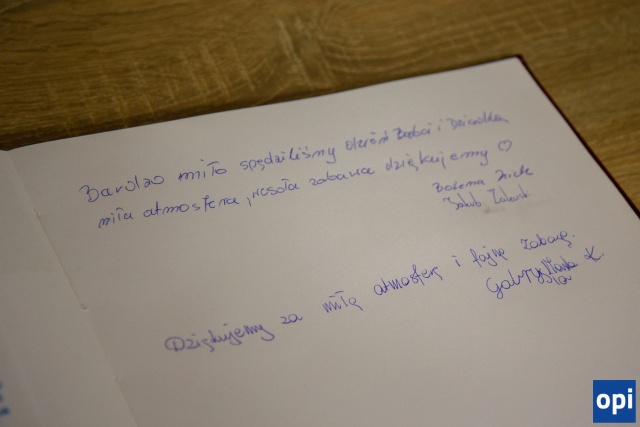 Bardzo miło spędziliśmy Dzień Babci i Dziadka,
miła atmosfera, wesoła zabawa dziękujemy ♡
Bożena
Jakub
Dziękujemy za miłą atmosferę i fajną zabawę.
K.
opi